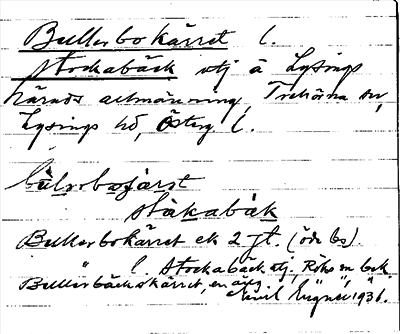 Bullerbokärret l.
Stockabäck utj å Lysings
härads allmänning, Trehörna sn,
Lysings hd, Österg l.
bùlərboʃärət
stàkabäk
Bullerbokärret ek 2 jt. (öde bs).
" l. Stockabäck utj, Röks sn bek
Bullerbäckskärret, en äng " "
Emil Engner 1931.